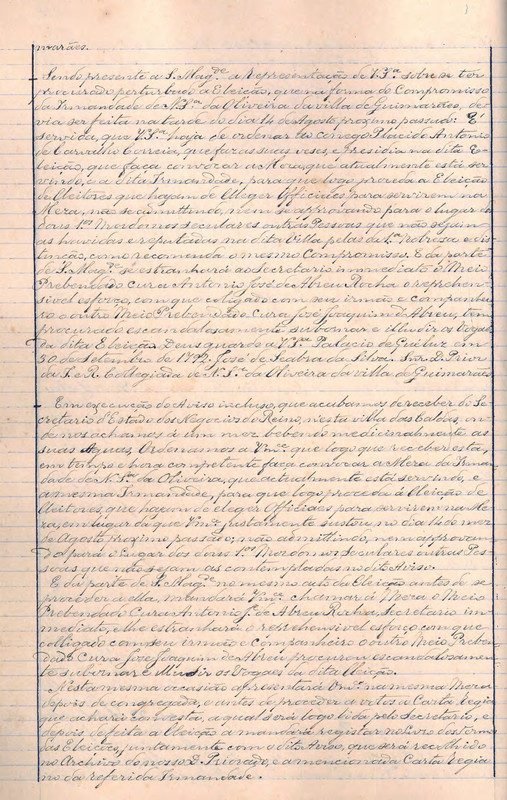 marães.
Sendo presente a S. Magde a Representação de V.Sa sobre se ter
procurado perturbado a Eleição, que na forma do Compromisso
da Irmandade de N. Sra da Oliveira da villa de Guimarães, de-
via ser feita na tarde do dia 14 de Agosto proximo passado: É
servida, que V.Sa haja de ordenar ao conego Placido Antonio
de Carvalho Correia, que faz as suas vezes, e Presidia na dita E-
leição, que faça convocar a Meza, que atualmente está ser-
vindo, e a dita Irmandade, para que logo proceda a Eleição
de Eleitores que hajam de Eleger Officiaes para servirem na
Meza, não se admittindo, nem se aprovando para o lugar de
dous 1os Mordomos seculares outras Pessoas que não sejam
as havidas e reputadas na dita Villa pelas da 1a Nobresa e dis-
tincção, como recomenda o mesmo Compromisso. E da parte
de S. Magde se estranhará ao Secretario immediato o Meio
Prebendado Cura Antonio José de Abreu Rocha o reprehen-
sivel esforço, com que colligado com seu irmão e companhei-
ro o outro Meio Prebendado Cura José Joaquim de Abreu, tem
procurado escandalosamente subornar e illudir os Vogaes
da dita Eleição. Deus guarde a V.Sa Palacio de Queluz em
30 de Setembro de 1792. José de Seabra da Silva. Snr. D. Prior
da I. e R. Collegiada de N. Sra da Oliveira da villa de Guimarães
Em execução do Aviso incluso, que acabamos de receber do Se-
cretario d'Estado dos Negocios do Reino, nesta villa das Caldas, on-
de nos achamos á um mez bebendo medicinalmente as
suas Aguas, Ordenamos a Vmce que logo que receber esta,
em tempo e hora competente faça convocar a Meza da Irman-
dade de N. Sra da Oliveira, que actualmente está servindo, e
a mesma Irmandade, para que logo proceda á Eleição de
Eleitores, que hajam de eleger Officiaes para servirem na Me-
za, em lugar da que Vmce justamente sustou no dia 14 do mez
de Agosto proximo passado; não admittindo, nem aprovan-
do para o lugar dos dous 1os Mordomos Seculares outras Pes-
soas que não sejam as contempladas no dito Aviso.
E da parte de S. Magde no mesmo auto da Eleição antes de se
proceder a ella, mandará Vmce chamar á Meza o Meio
Prebendado Cura Antonio J. de Abreu Rocha, Secretario im-
mediato, e lhe estranhará o reprehensivel esforço com que
colligado com seu irmão e companheiro o outro Meio Preben-
dado Cura José Joaquim de Abreu procurou escandalosamen-
te subornar e illudir os Vogaes da dita Eleição.
Nesta mesma occasião apresentará Vmce na mesma Meza
depois de congregada, e antes de proceder a votos a Carta Regia
que achará com esta, a qual será logo lida pelo Secretario, e
depois de feita a Eleição a mandará registar no livro dos termos
das Eleições, juntamente com o dito Aviso, que será recolhido
no Archivo do nosso D. Priorado, e a mencionada Carta Regia
no da referida Irmandade.